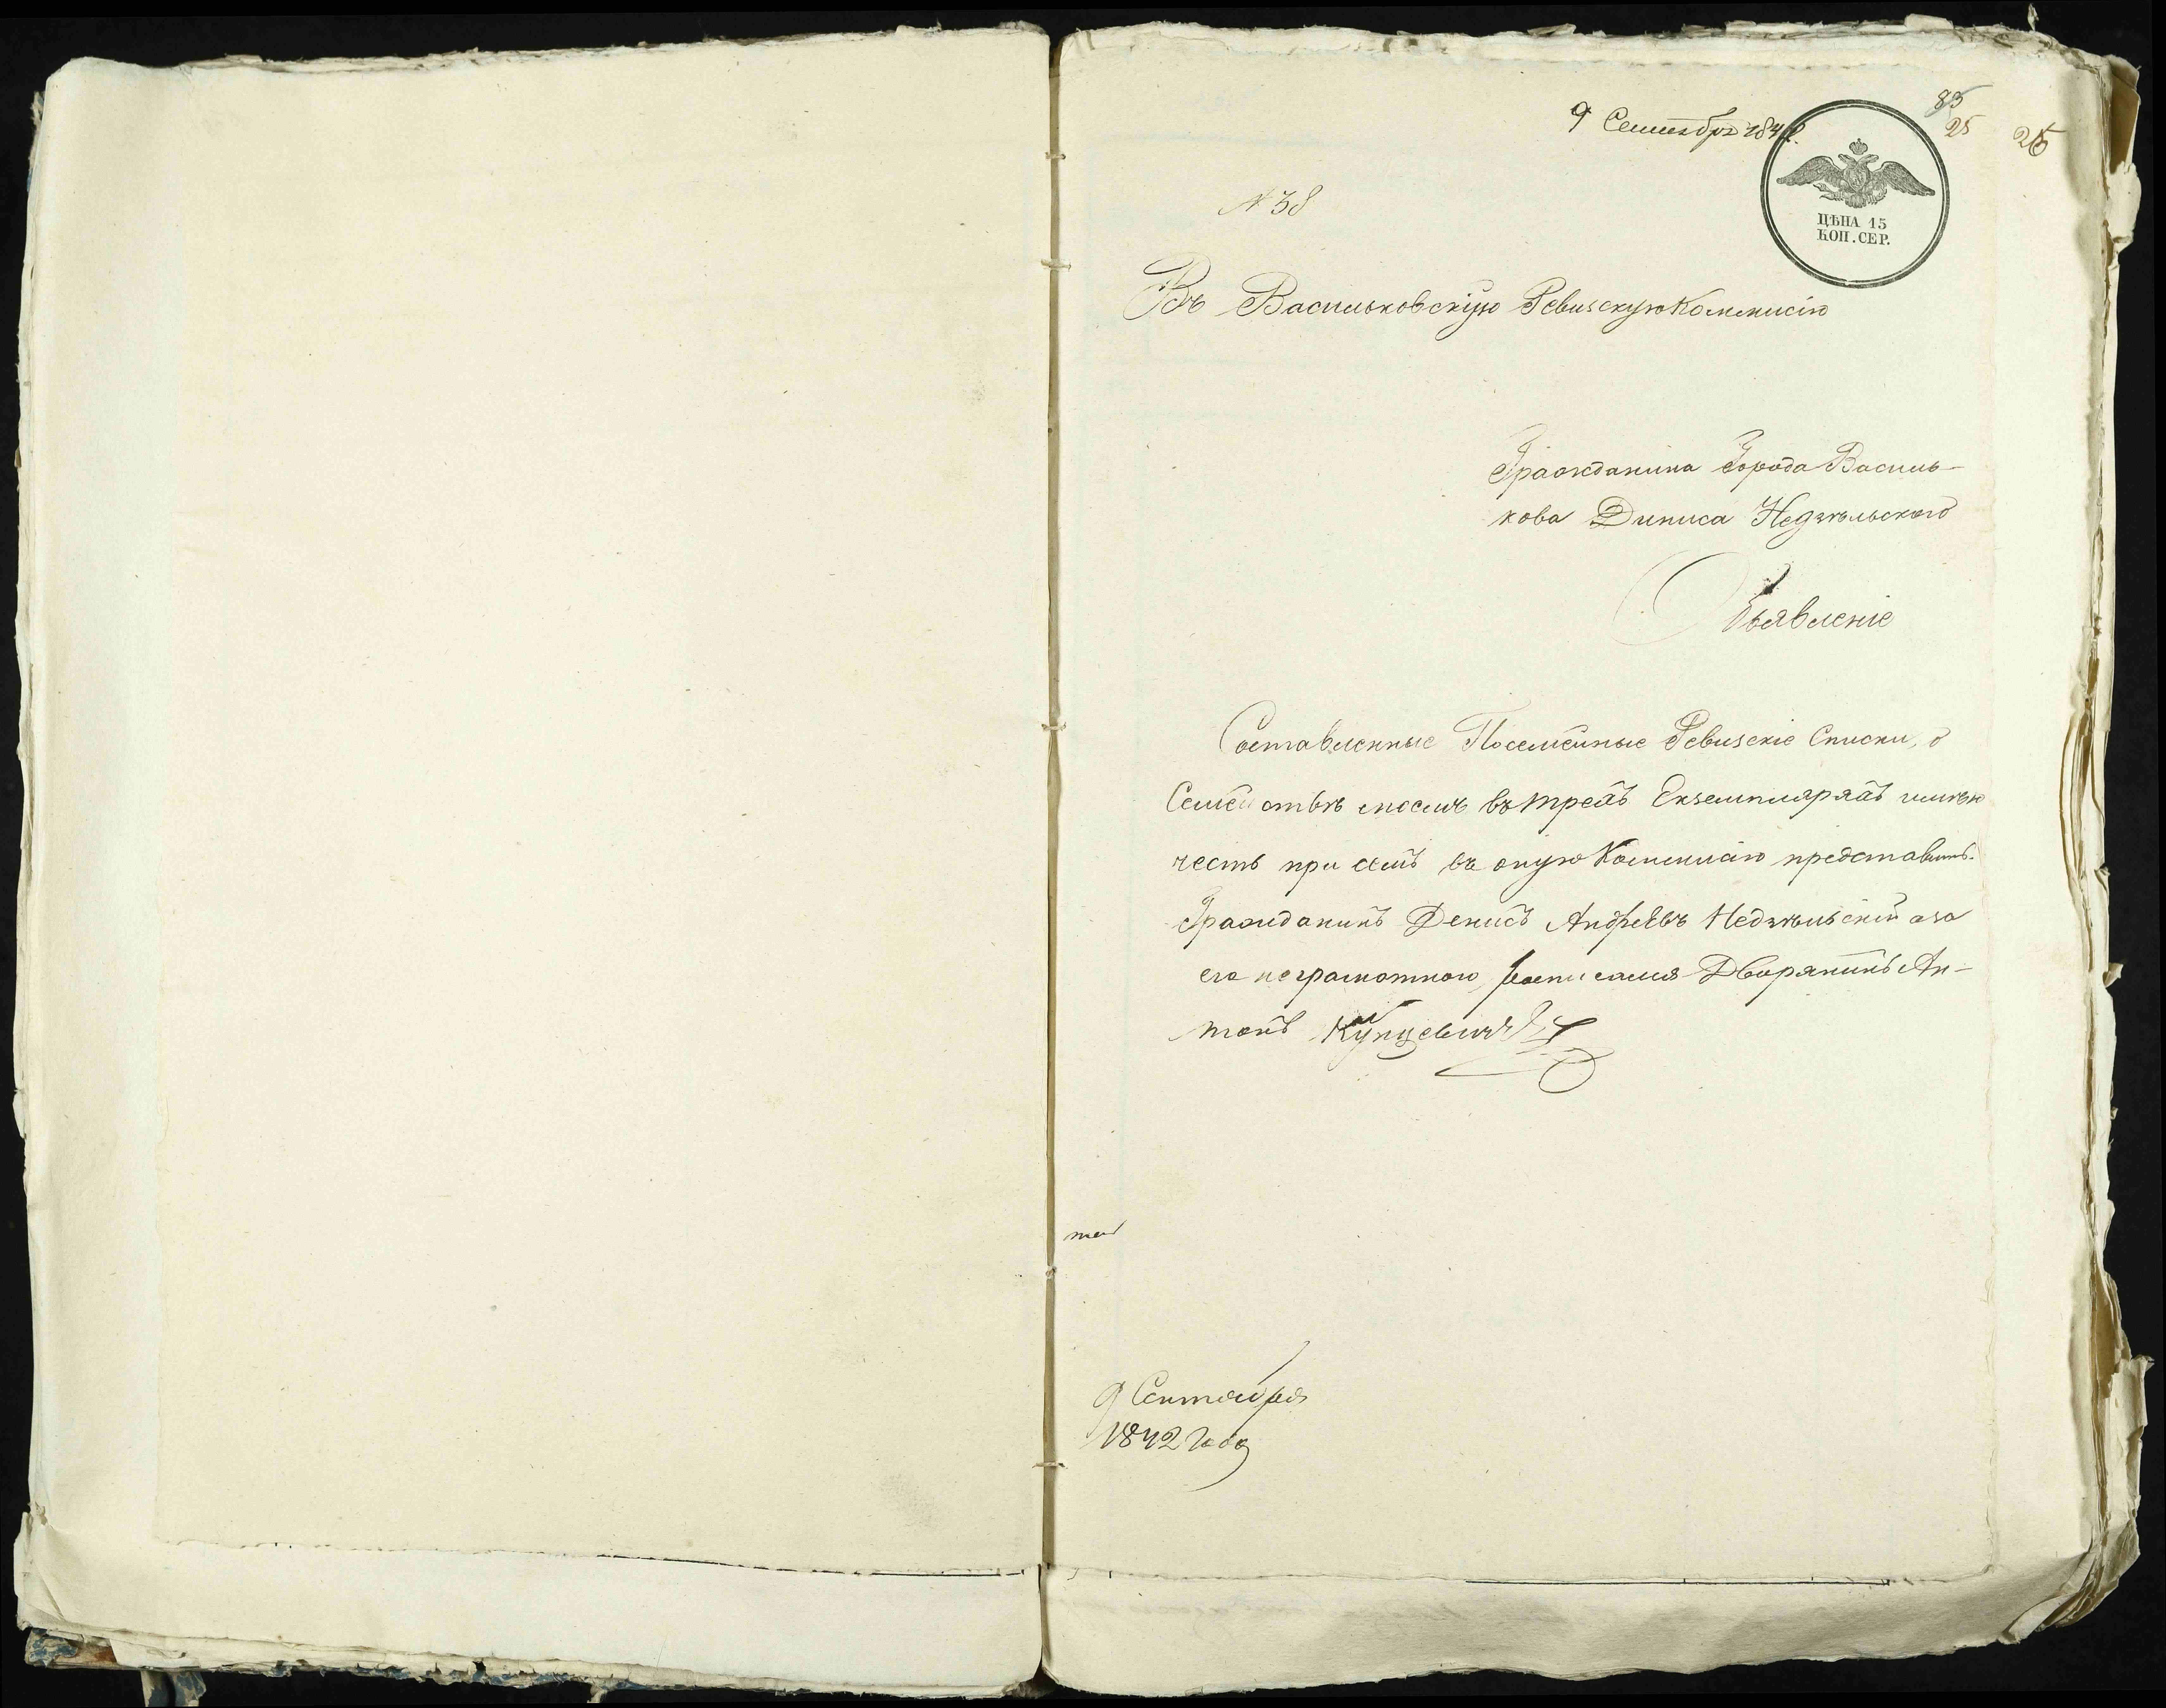 9 Сентября 1842.
83
25
26
№ 38
ЦѢНА 15
КОП. СЕР.
Въ Васильковскую Ревизскую Коммисію
Гражданина Города Василь-
кова Диниса Недзѣльского
Объявленіе
Составленные Посемейные Ревизскіе Списки, о
Семействѣ моемъ въ трехъ Екземплярахъ имѣю
честь при семъ въ оную Коммисію представить.
Гражданинъ Денисъ Андреевъ Недзѣльскій а за
его неграмотного росписался Дворянинъ Ан-
тонъ Купцевичъ
9 Сентября
1842 года